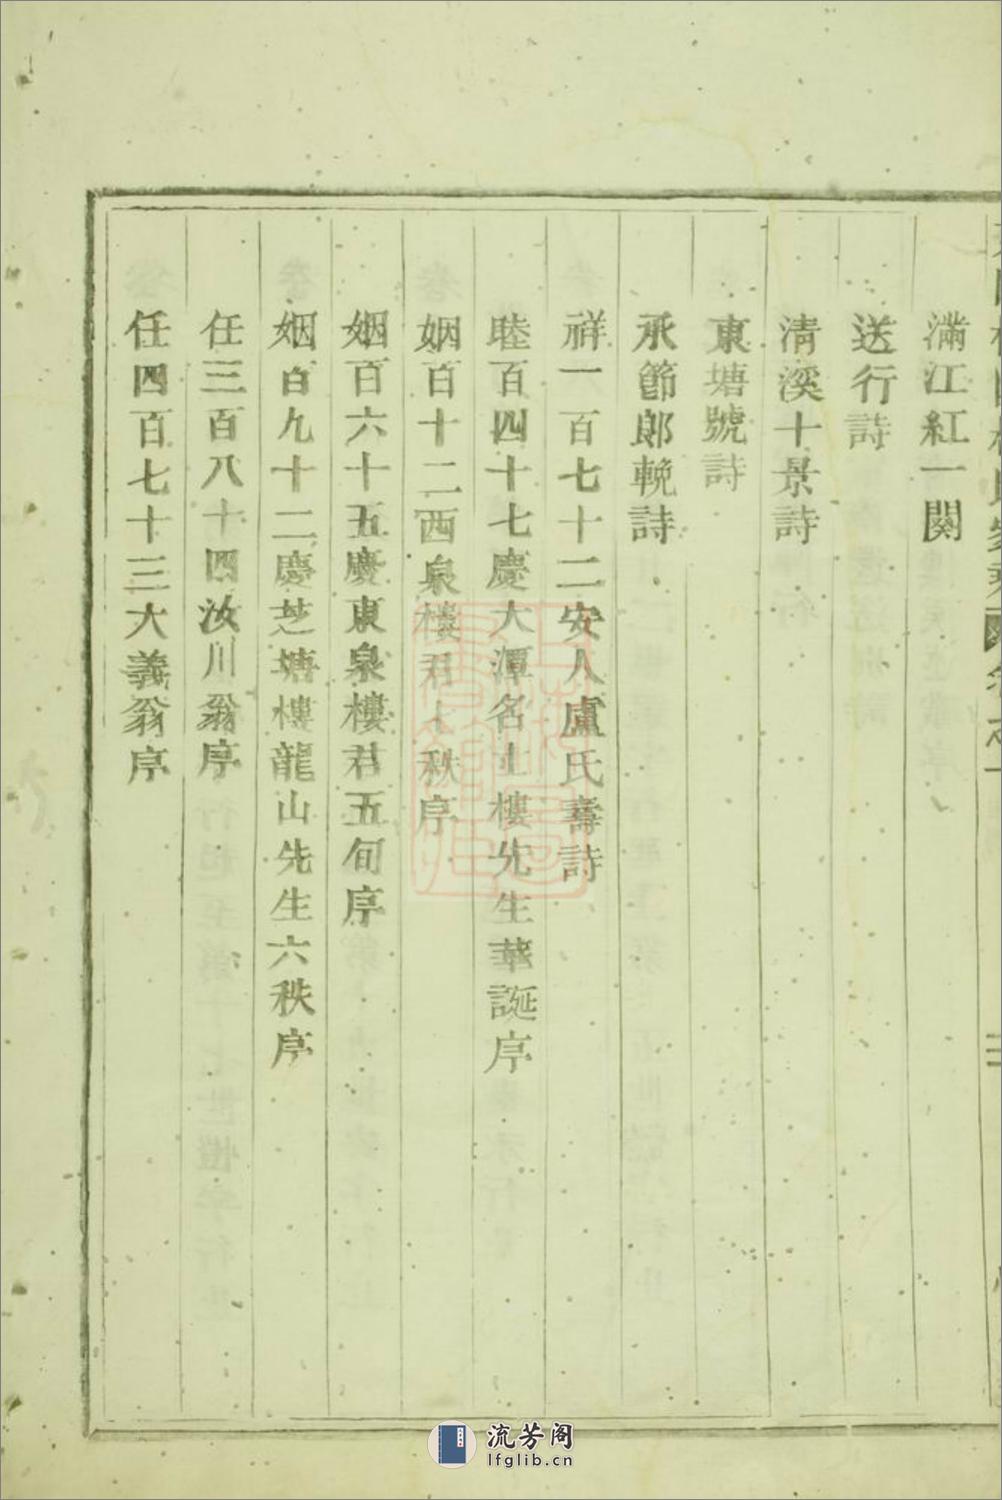 滿江紅一闋
送行詩
清溪十景詩
東塘號詩
承節郎輓詩
祥一百七十二安人盧氏壽詩
睦百四十七慶大潭名士樓先生華誕序
姻百十二西泉樓君七秩序
姻百六十五慶東泉樓君五旬序
姻百九十二慶芝塘樓龍山先生六秩序
任三百八十四汝川翁序
任四百七十三大義翁序
流芳阁
lfglib.cn